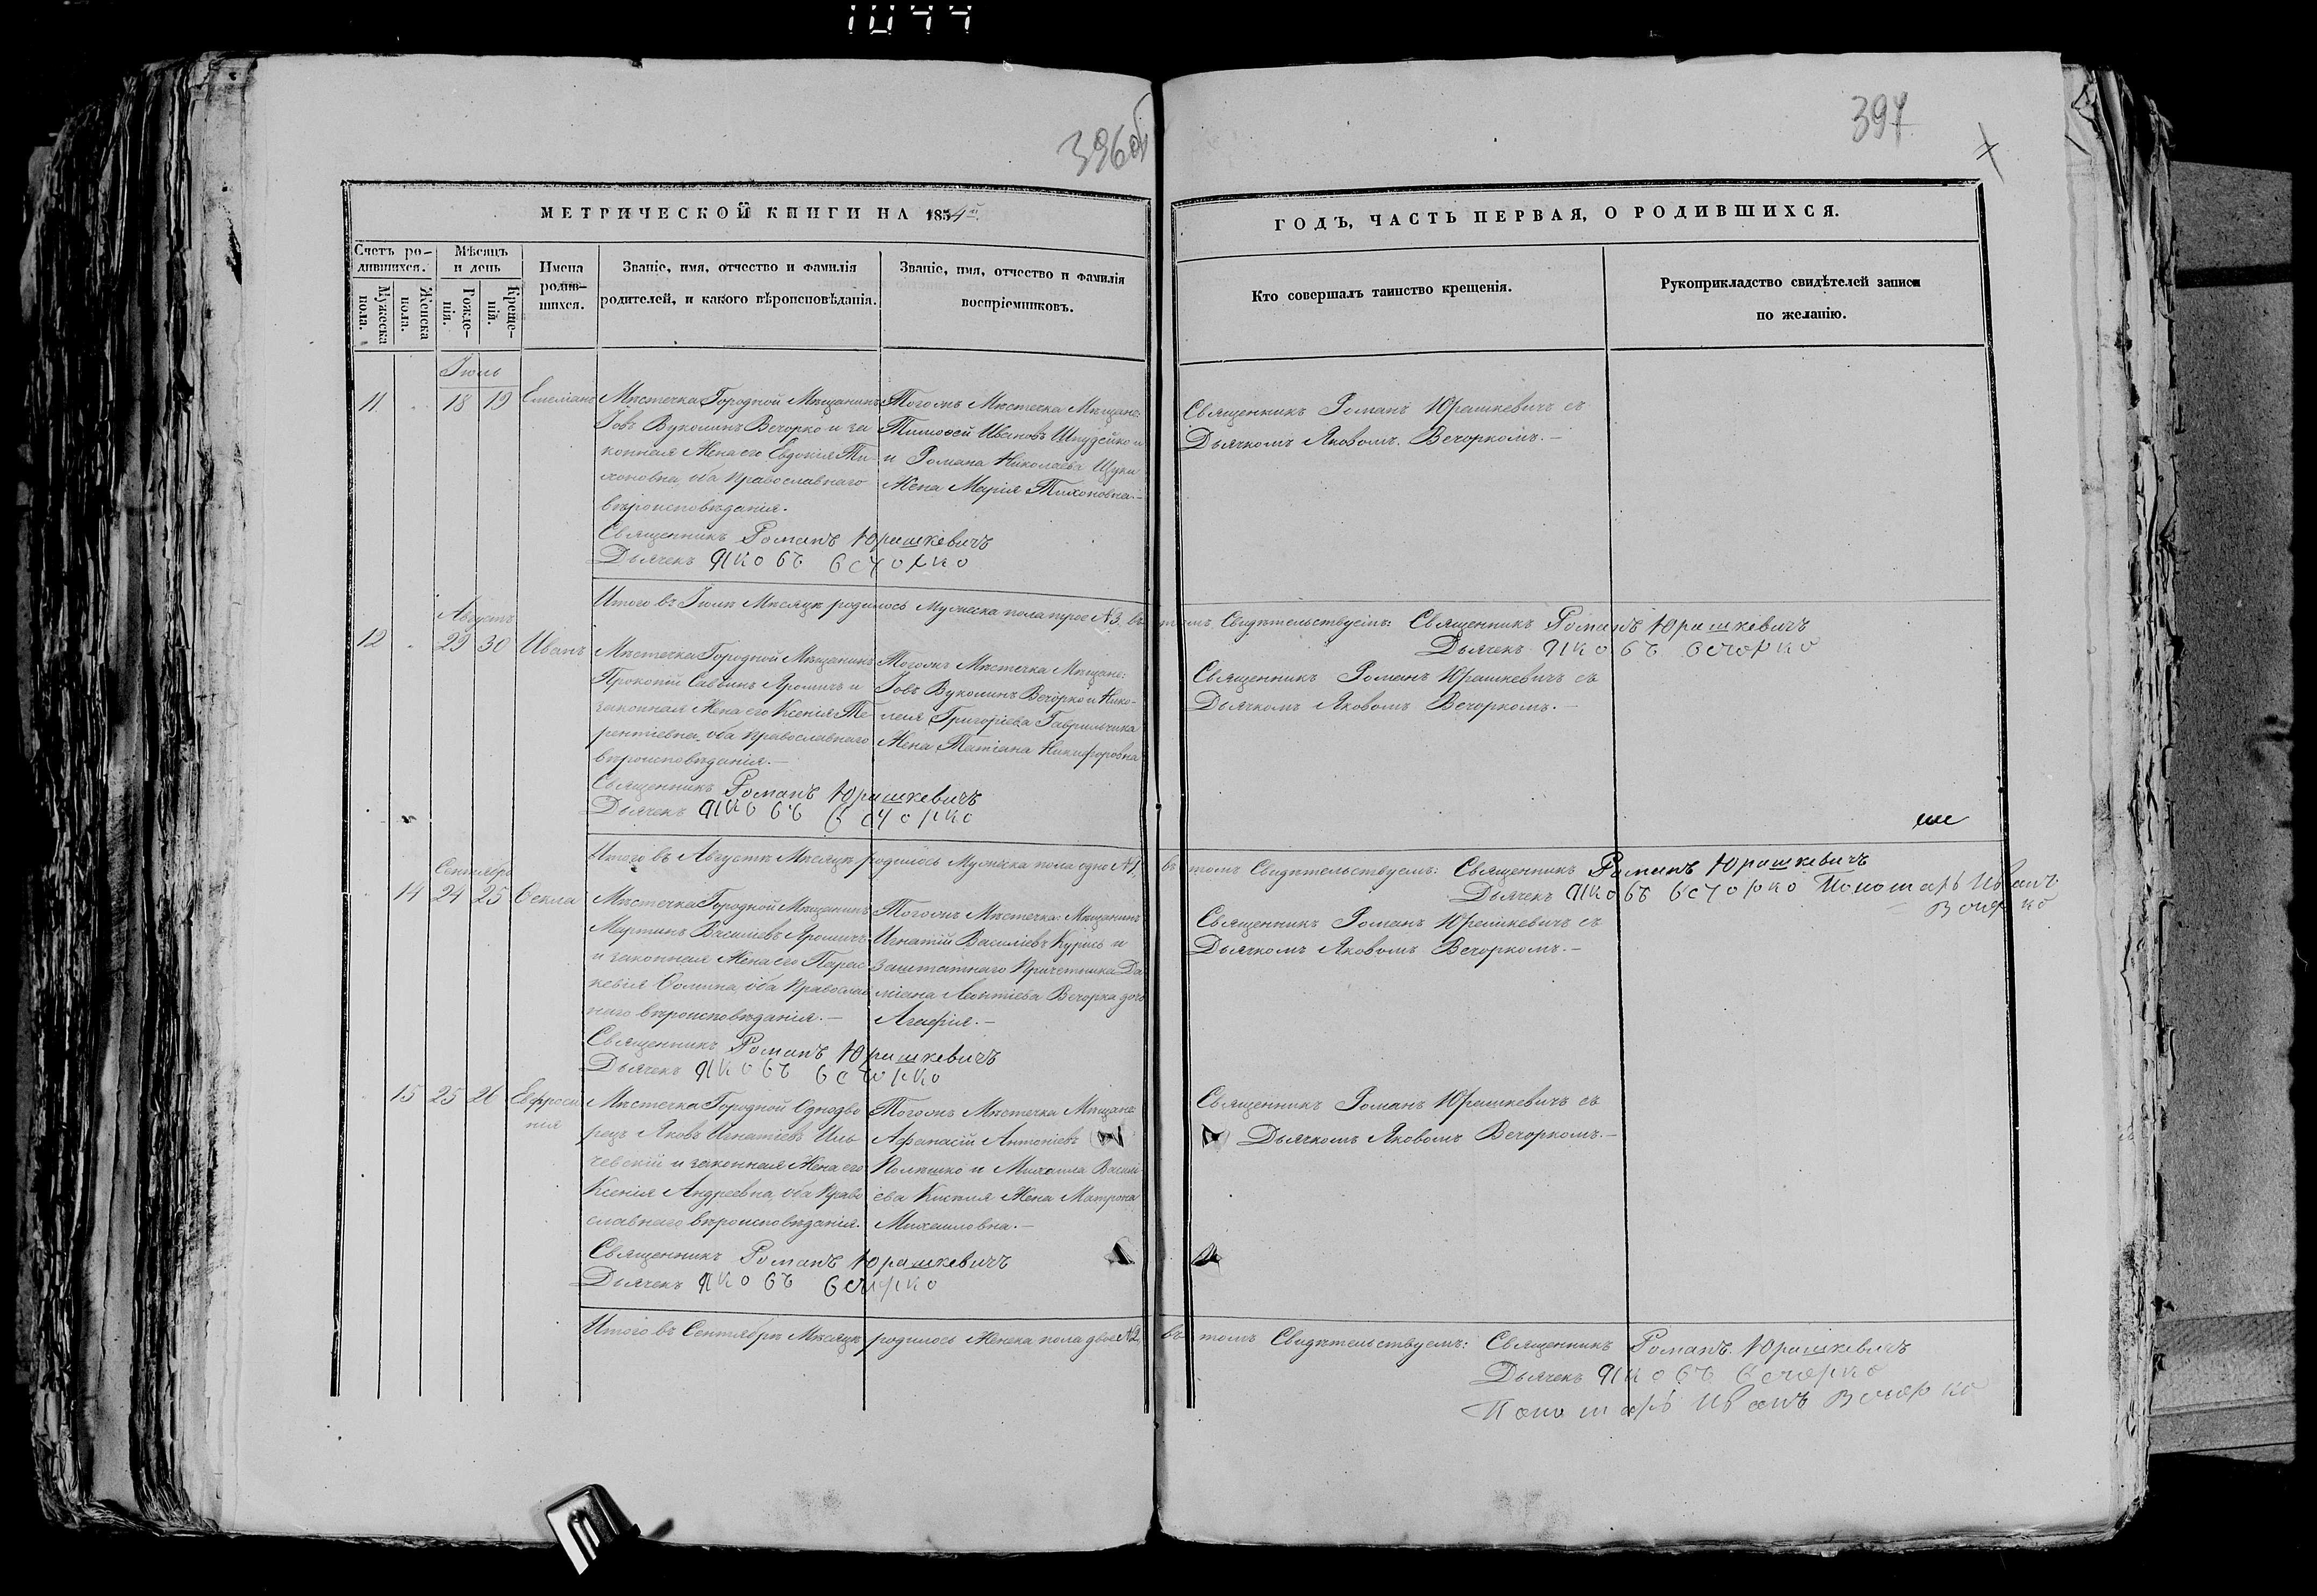 1044
396 об
397
МЕТРИЧЕСКОЙ КНИГИ НА 1854й
ГОДЪ, ЧАСТЬ ПЕРВАЯ, О РОДИВШИХСЯ.
Счетъ ро-
дившихся.
Мужеска
пола.
Женска
пола.
Мѣсяцъ
и день
Рожде-
нія.
Креще-
ній.
Имена
родив-
шихся.
Званіе, имя, отчество и фамилія
родителей, и какого вѣроисповѣданія.
Званіе, имя, отчество и фамилія
воспріемниковъ.
Кто совершалъ таинство крещенія.
Рукоприкладство свидѣтелей записи
по желанію.
Іюль
11. 18 19 Емеліанъ
Мѣстечка Городной Мѣщанинъ
Іовъ Вуколинъ Вечорко и за
конная Жена его Евдокія Ти-
хоновна, оба Православнаго
вѣроисповѣданія.
Тогожъ Мѣстечка Мѣщане:
Тимоѳей Ивановъ Шпудейко и
и Романа Николаева Щуки
Жена Марія Тихоновна.-
Священникъ Романъ Юрашкевичъ съ
Дьячкомъ Яковомъ Вечоркомъ.-
Священникъ Романъ Юрашкевичъ
Дьячекъ Яковъ вечорко
Итого въ Іюлѣ Мѣсяцѣ родилось Мужеска пола трое №3, въ томъ Свидѣтельствуемъ: Священникъ Романъ Юрашкевичъ
Дьячекъ Яковъ вечорко
Августъ
12 29 30 Иванъ
Мѣстечка Городной Мѣщанинъ
Прокопій Савинъ Яромичъ и
законная Жена его Ксенія Те-
рентіевна, оба Православнаго
вѣроисповѣданія.-
Тогожъ Мѣстечка Мѣщане:
Іовъ Вуколинъ Вечорко и Нико-
лая Григоріева Гаврильчика
Жена Татіана Никифоровна
Священникъ Романъ Юрашкевичъ съ
Дьячкомъ Яковомъ Вечоркомъ.-
Священникъ Романъ Юрашкевичъ
Дьячекъ Яковъ вечорко
Итого въ Августѣ Мѣсяцѣ родилось Мужеска пола одно №1, въ томъ Свидѣтельствуемъ: Священникъ Романъ Юрашкевичъ
Дьячекъ Яковъ вечорко Пономарь Иванъ
Вечорко
Сентябрь
14 24 25 Ѳекла
Мѣстечка Городной Мѣщанинъ
Мартинъ Василіевъ Яромичъ
и законная Жена его Парас
кевія Ѳомина, оба Православ
наго вѣроисповѣданія.-
Тогожъ Мѣстечка: Мѣщанинъ
Игнатій Василіевъ Курись и
Заштатнаго Причетника Да-
міана Леонтіева Вечорка дочь
Агафія.-
Священникъ Романъ Юрашкевичъ съ
Дьячкомъ Яковомъ Вечоркомъ.-
Священникъ Романъ Юрашкевичъ
Дьячекъ Яковъ вечорко
15 25 26 Евфроси
нія
Мѣстечка Городной Однодво
рецъ Яковъ Игнатіевъ Иль
чевскій и законная Жена его
Ксенія Андреевна, оба Право
славнаго вѣроисповѣданія.
Тогожъ Мѣстечка Мѣщане
Афанасій Антоніевъ
Полешко и Михаила Васили
ева Кисиля Жена Матрона
Михаиловна.-
Священникъ Романъ Юрашкевичъ съ
Дьячкомъ Яковомъ Вечоркомъ.-
Священникъ Романъ Юрашкевичъ
Дьячекъ Яковъ вечорко
Итого въ Сентябрѣ Мѣсяцѣ родилось Женска пола двое №2, въ томъ Свидѣтельствуемъ: Священникъ Романъ Юрашкевичъ
Дьячекъ Яковъ вечорко
Пономарь Иванъ Вечорко